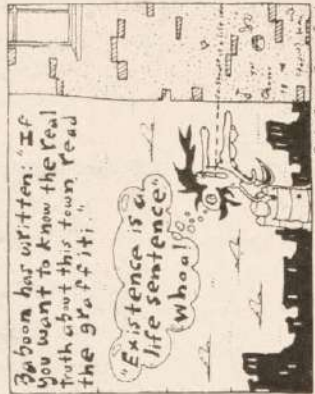 Baboon has written: "If
you want to know the real
truth about this town, read
the graffiti."
"Existence is a
life sentence"
Whoa!